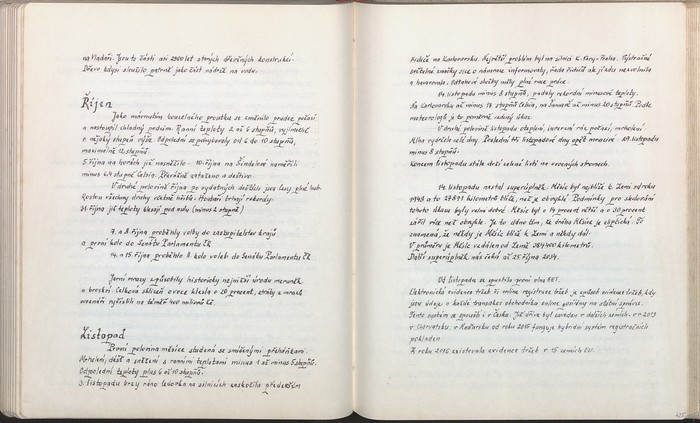 na Vladaři. Jsou to části asi 2500 let starých dřevěných konstrukcí.
Dřevo kdysi sloužilo patrně jako část nádrže na vodu.
Říjen
Jako mávnutím kouzelného proutku se změnilo prudce počasí
a nastoupil chladný podzim. Ranní teploty 2 až 6 stupňů, vyjímečně
o nějaký stupeň výše. Odpolední se pohybovaly od 6 do 10 stupňů,
maximálně 12 stupňů.
5. října na horách již nasněžilo. 10. října na Šindelové naměřili
minus 6,4 stupně Celsia. Převážně zataženo a deštivo.
V druhé polovině října po vydatných deštích jsou lesy plné hub.
Rostou všechny druhy včetně hřibů. Houbaři trhají rekordy.
31. října již teploty klesají pod nulu (minus 2 stupně)
7. a 8. října proběhly volby do zastupitelstev krajů
a první kolo do Senátu Parlamentu ČR
14. a 15. října proběhlo II. kolo voleb do Senátu Parlamentu ČR
Jarní mrazy způsobily historicky nejnižší úrodu meruněk
a broskví. Celková sklizeň ovoce klesla o 20 procent, ztráty z mrazů
ovocnáři vyčíslili na téměř 400 milionů Kč.
Listopad
První polovina měsíce studená se smíšenými přeháňkami.
Mrholení, déšť a sněžení s ranními teplotami minus 1 až minus 5 stupňů.
Odpolední teploty plus 6 až 10 stupňů.
3. listopadu brzy ráno ledovka na silnicích zaskočila především
řidiče na Karlovarsku. Největší problém byl na silnici K. Vary-Praha. Výstražné
světelné značky sice o námraze informovaly, řada řidičů ale jízdu nezvolnila
a havarovala. Odtahové služby měly plné ruce práce.
14. listopadu minus 8 stupňů, padaly rekordní mrazové teploty.
Na Karlovarsku až minus 14 stupňů Celsia, na Šumavě až minus 20 stupňů. Podle
meteorologů je to poměrně vzácný úkaz.
V druhé polovině listopadu oteplení, inverzní ráz počasí, mrholení
Mlhy vydržely celé dny. Poslední tři listopadové dny opět mrazivé. 29. listopadu
minus 8 stupňů.
Koncem listopadu stále drží zelené listí na ovocných stromech.
14. listopadu nastal superúplněk. Měsíc byl nejblíž k Zemi od roku
1948 a to 27891 kilometrů blíže, než je obvyklé. Podmínky pro sledování
tohoto úkazu byly velmi dobré. Měsíc byl o 14 procent větší a o 30 procent
zářil více než obvykle. Je to dáno tím, že dráha Měsíce je eliptická. To
znamená, že někdy je Měsíc blíž k Zemi a někdy dál.
V průměru je Měsíc vzdálen od Země 384400 kilometrů.
Další superúplněk nás čeká až 25. října 2034.
Od listopadu se spustila první vlna EET.
Elektronická evidence tržeb či online registrace tržeb je způsob evidence tržeb, kdy
jsou údaje o každé transakci obchodníka online posílány na státní správu.
Tento systém se spouští i v Česku. Již dříve byl zaveden v dalších zemích - v r. 2013
v Chorvatsku, v Maďarsku od roku 2015 funguje hybridní systém registračních
pokladen
K roku 2015 existovala evidence tržeb v 15 zemích EU.